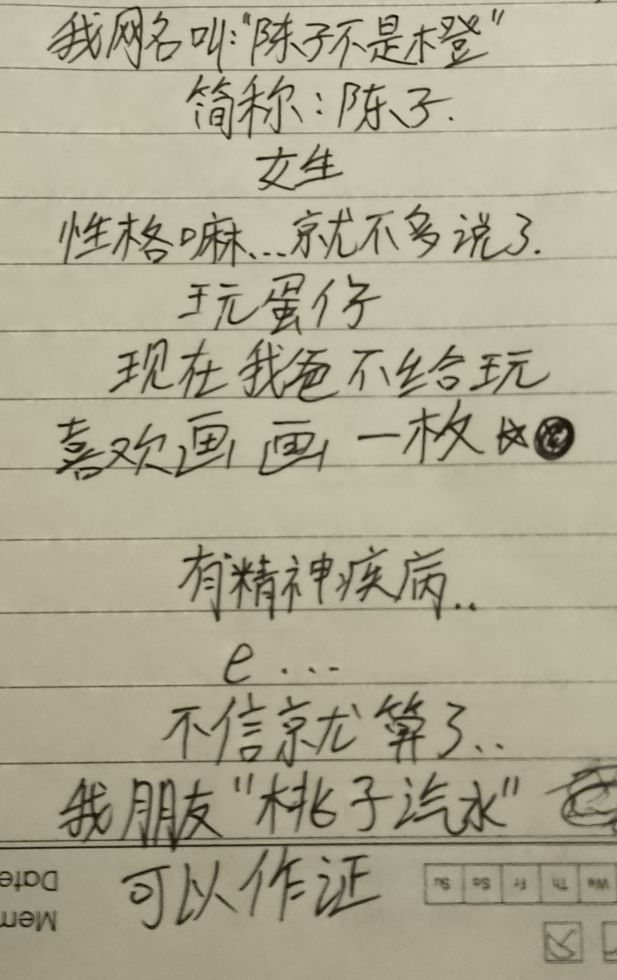 我网名叫:"陈子不是橙"
简称:陈子.
女生
性格嘛...就不多说了.
玩蛋仔
现在我爸不给玩
喜欢画画一枚
有精神疾病..
e...
不信就算了..
我朋友"桃子汽水"
可以作证
Date
Mem
We Th Fr Sa Su